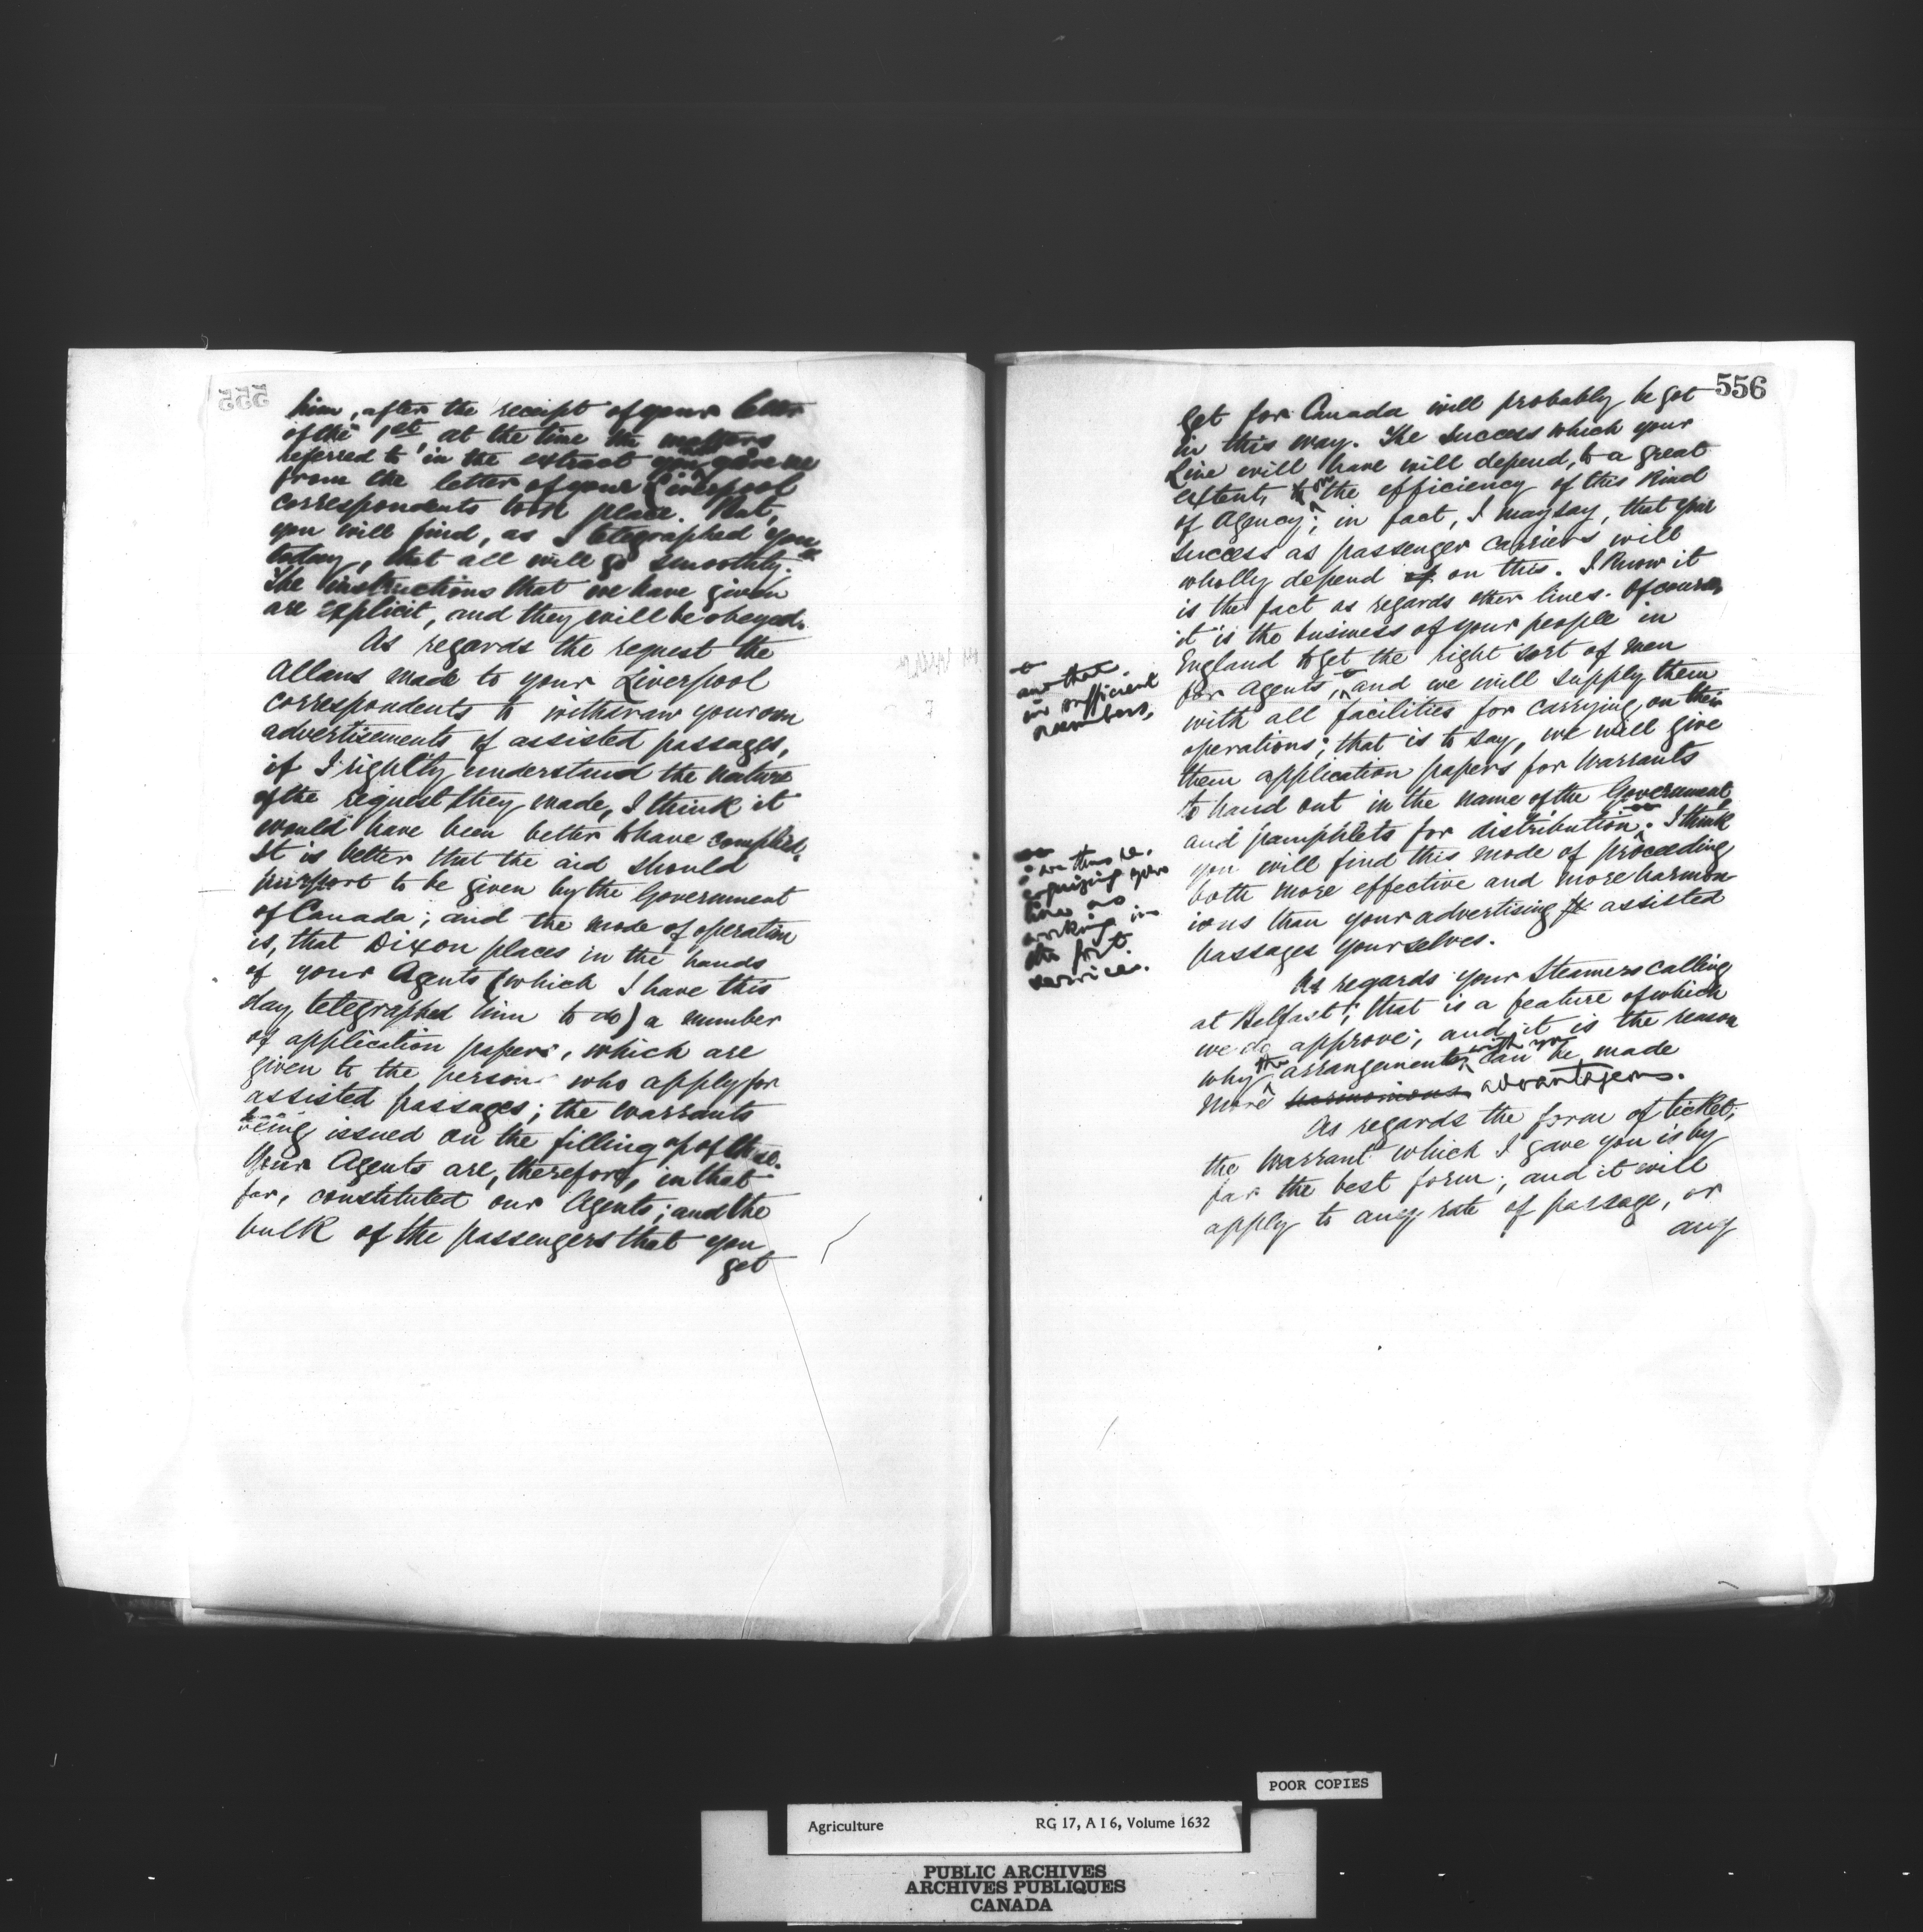 555
him, after the receipt of your letter
of the 1st, at the time the matters
referred to in the extract you gave me
from the letter of your Liverpool
correspondents took place. But,
you will find, as I telegraphed you
today, that all will go smoothly.
The instructions that we have given
are explicit, and they will be obeyed.
As regards the request the
Allans made to your Liverpool
correspondents to withdraw your own
advertisements of assisted passages,
if I rightly understand the nature
of the request they made, I think it
would have been better to have complied.
It is better that the aid should
purport to be given by the Government
of Canada; and the mode of operation
is, that Dixon places in the hands
of your Agents (which I have this
day telegraphed him to do) a number
of application papers, which are
given to the persons who apply for
assisted passages; the warrants
being issued on the filling up of these.
Your Agents are, therefore, in that
far, constituted our Agents; and the
bulk of the passengers that you
get
556
get for Canada will probably be got
in this way. The success which your
Line will have will depend, to a great
extent, on the efficiency of this kind
of Agency; in fact, I may say, that your
success as passenger carriers will
wholly depend on this. I know it
is the fact as regards other lines. Of course,
it is the business of your people in
England to get the right sort of men
for Agents, and we will supply them
and that
in sufficient
numbers,
with all facilities for carrying on their
operations; that is to say, we will give
them application papers for warrants
to hand out in the name of the Government,
and pamphlets for distribution. I think
you will find this mode of proceeding
both more effective and more harmon
ious than your advertising assisted
passages yourselves.
thus re-
cognizing your
line as
working in
the first
service.
As regards your Steamers calling
at Belfast; that is a feature of which
we do approve; and it is the reason
why the arrangements with you can be made
more harmonious advantageous.
As regards the form of ticket;
the warrant which I gave you is by
far the best form; and it will
apply to any rate of passage, or
any
POOR COPIES
Agriculture RG 17, A I 6, Volume 1632
PUBLIC ARCHIVES
ARCHIVES PUBLIQUES
CANADA